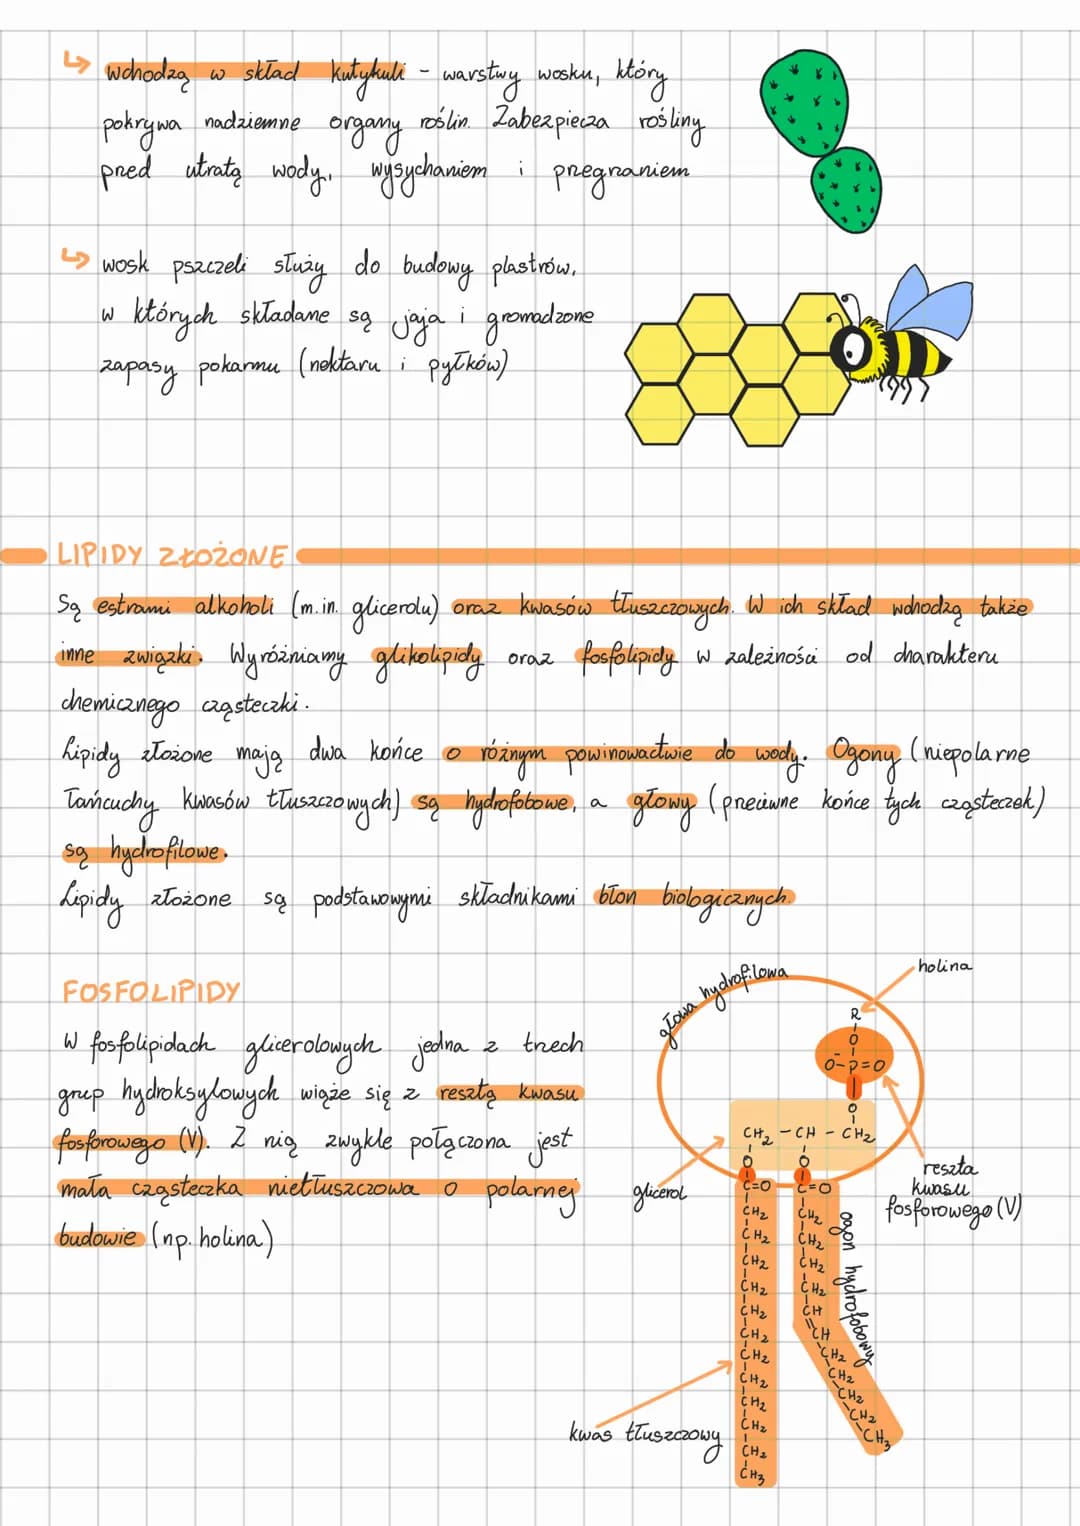 ↳ wchodzą w skład kutykuli - warstwy wosku, który
pokrywa nadziemne organy roślin. Zabezpiecza rośliny
pred utratą wody, wysychaniem i pregrzaniem
↳ wosk pszczeli służy do budowy plastrów,
w których składane są jaja i gromadzone
zapasy pokarmu (nektaru i pyłków)
LIPIDY ZŁOŻONE
Są estrami alkoholi (m.in. glicerolu) oraz kwasów tłuszczowych. W ich skład wchodzą także
inne związki. Wyróżniamy glikolipidy oraz fosfolipidy w zależności od charakteru
chemicznego cząsteczki.
Lipidy złożone mają dwa końce o różnym powinowactwie do wody. Ogony (niepolarne
łańcuchy kwasów tłuszczowych) są hydrofobowe, a głowy (preciwne końce tych cząsteczek)
są hydrofilowe.
Lipidy złożone są podstawowymi składnikami błon biologicznych.
FOSFOLIPIDY
W fosfolipidach glicerolowych jedna z trzech
grup hydroksylowych wiąże się z resztą kwasu
fosforowego (V). Z nią zwykle połączona jest
mała cząsteczka nietłuszczowa o polarnej
budowie (np. holina)
głowa hydrofilowa
holina
R
O
O⁻-P=O
O
CH₂ - CH - CH₂
O O
C=O C=O
glicerol
reszta
kwasu
fosforowego (V)
CH₂
CH₂
CH₂
CH₂
CH₂
CH₂
CH₂
CH₂
CH₂
CH₂
CH₂
CH₃
CH₂
CH₂
CH₂
CH₂
CH
CH
CH₂
CH₂
CH₂
CH₂
CH₃
ogon hydrofobowy
kwas tłuszczowy